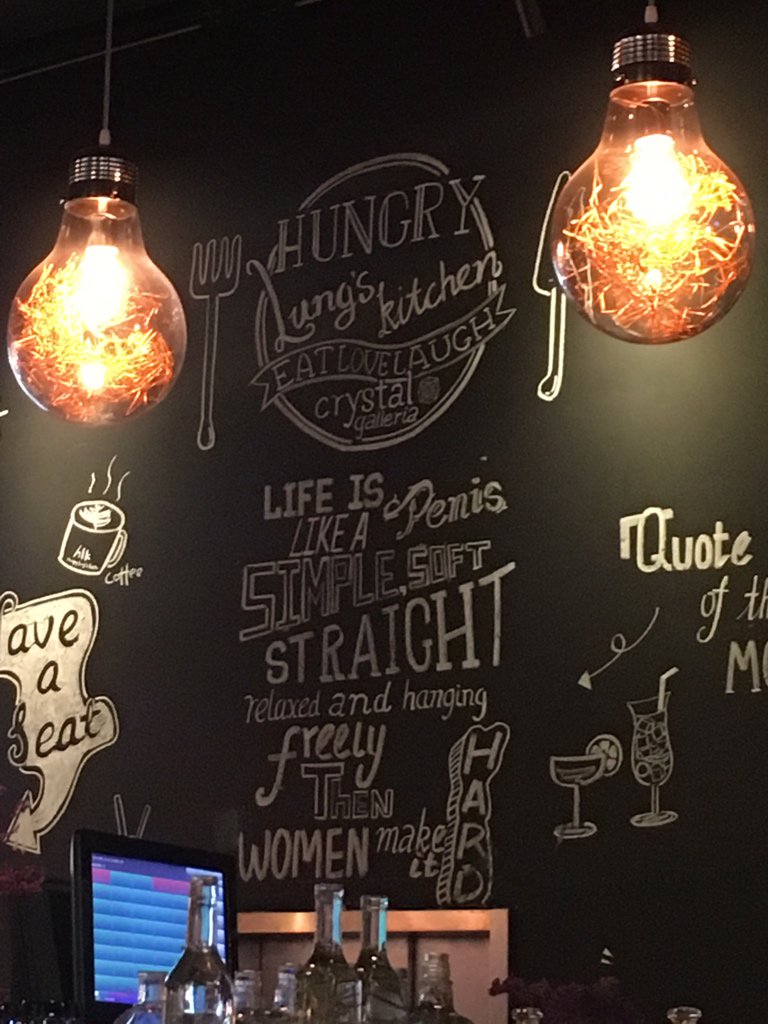 HUNGRY
Lung's kitchen
EAT LOVE LAUGH
crystal
galleria
LIFE IS
LIKE A Penis
SIMPLE, SOFT
STRAIGHT
relaxed and hanging
freely
THEN
WOMEN make
it HARD
coffee
ave
a
Seat
Quote
of th
MO